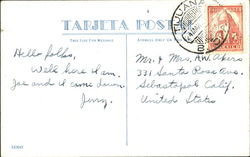 TARJETA POST
THIS SIDE FOR MESSAGE
ADDRESS ONLY ON
TIJUANA
MEXICO
Hello folks,
Well here I am.
Joe and I came down.
Jerry.
Mr. & Mrs. A.W. Akers
331 Santa Rosa Ave.
Sebastopol Calif.
United States